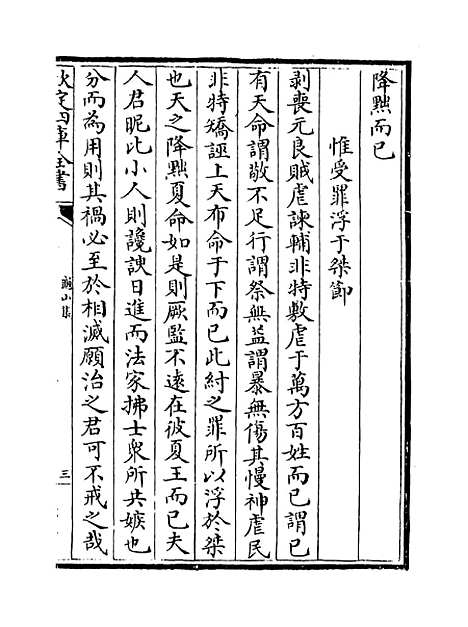 降黜而已
惟受罪浮于桀節
剥喪元良賊虐諫輔非特敷虐于萬方百姓而已謂已
有天命謂敬不足行謂祭無益謂暴無傷其慢神虐民
非特矯誣上天布命于下而已此紂之罪所以浮於桀
也天之降黜夏命如是則厥監不逺在彼夏王而已夫
人君昵比小人則讒諛日進而法家拂士衆所共嫉也
分而為用則其禍必至於相滅願治之君可不戒之哉
欽定四庫全書
三